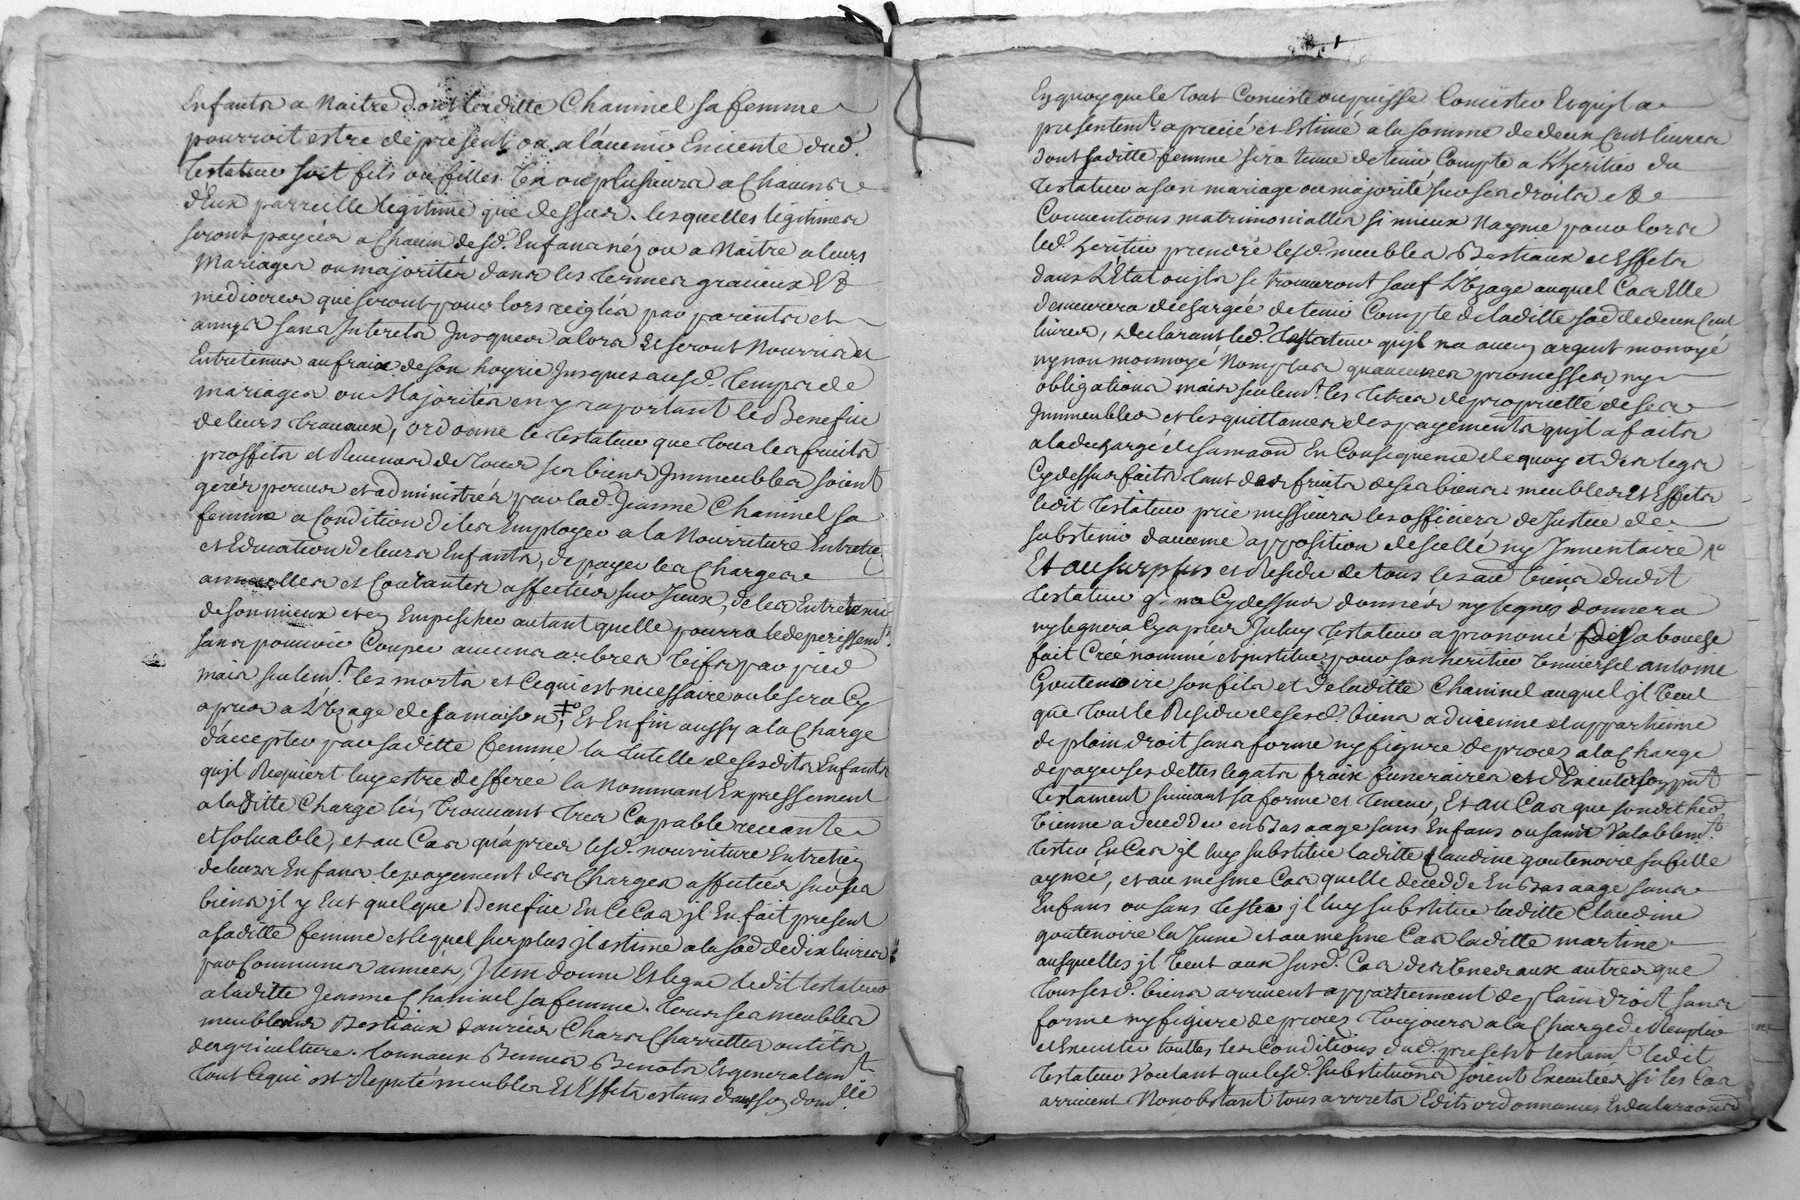 Enfants a Naitre dont laditte Chaminel sa femme
pourroit estre de present ou a lavenir Enceinte dud.
Testateur soit fils ou filles Un ou plusieurs a Chacun
d'Eux pareille legitime que dessus. lesquelles legitimes
seront payées a Chacun desd. Enfans néz ou a Naitre a leurs
Mariages ou majorités dans les termes gracieux Et
mediocres qui seront pour lors reiglés par parents et
amys sans Interets Jusques alors Et seront Nourris et
Entretenus au fraix de son hoyrie Jusques ausd. temps de
mariages ou Majorités en y raportant le Benefice
de leurs travaux, ordonne le Testateur que tous les fruits
proffits et Revenus de tous ses biens Immeubles soient
gerés percus et administrés par lad. Jeanne Chaminel sa
femme a Condition di les Employer a la Nourriture Entretien
et Education de leurs Enfants, de payer les Charges
annuelles et Courantes affectées sur Iceux, de les Entretenir
de son mieux et en Empescher autant quelle pourra le deperissemt.
sans pouvoir Couper aucuns arbres Vifs par pied
mais seulemt. les morts et Ce qui est necessaire ou le sera Cy
apres a L'Uzage de sa maison, Et Enfin aussy a la Charge
d'accepter par saditte femme la tutelle de sesdits Enfants
qu'jl Requiert luy estre defferée la Nommant Expressement
a laditte Charge les trouvant tres Capable
et solvable, et au Cas qu'apres lesd. nourriture Entretien
de leurs Enfans le payement des Charges affectées sur ses
biens jl y Eut quelque Benefice En Ce Cas jl En fait present
a saditte femme et lequel surplus jl estime a la so^e de dix livres
par Communes années, Jtem donne Et legue ledit testateur
a laditte Jeanne Chaminel sa femme. Tous ses meubles
meublans Bestiaux danrées Chars Charrettes outils
dagriculture. tonnaux Bennes Benots Et generalemt.
tout Cequi est Reputé meubles Et Effets estans dans son domlle
En quoy que le tout Consiste ou puisse Consister Et qujl a
presentemt. aprecié et Estimé a la somme de deux Cent livres
dont saditte femme sera tenue de tenir Compte a L'heritier du
testateur a son mariage ou majorité sur ses droits et
Conventions matrimonialles si mieux Nayme pour lors
led. heritier prendre lesd. meubles Bestiaux et Effets
dans L'Etat ou jls se trouveront sauf L'Uzage auquel Cas Elle
demeurera dechargée de tenir Compte de laditte so^e de deux Cent
livres, declarant led. Testateur qujl na aucun argent monoyé
ny non monnoyé Nomplus quaucunes promesses ny
obligations mais seulemt. les titres de proprietté de ses
Immeubles et les quittances des payements qujl a faits
a la decharge de sa maison En Consequence de quoy et des legs
Cy dessus faits tant des fruits de ses biens. meubles Et Effets
ledit testateur prie messieurs les officiers de Justice de
substenir daucune apposition de scellé ny Inventaire
Et au surplus et Residu de tous les au. biens dudit
testateur q. na Cydessus donnés ny legués donnera
ny leguera Cyapres Iceluy testateur a pronomé de sa bouche
fait Créé nommé et justitue pour son heritier Universel antoine
Goutenoire son fils et de laditte Chaminel auquel jl veut
que tout le Residu de sesd. biens advienne et appartienne
de plain droit sans forme ny figure de procez a la Charge
de payer ses dettes legats fraix funeraires et d'Executer son pnt
Testament suivant sa forme et teneur, Et au Cas que sondit herd.
Vienne a deceder en Bas aage sans Enfans ou sans Valablemt.
tester En Cas jl luy substitue laditte Claudine goutenoire sa fille
aynée, et au mesme Cas quelle decedde En Bas aage sans
Enfans ou sans tester jl luy substitue laditte Claudine
goutenoire la Jeune et au mesme Cas laditte martine
ausquelles jl veut aux susd. Cas des Unes aux autres que
tous sesd. biens arrivent appartiennent de plain droit sans
forme ny figure de procez toujours a la Charge de Remplir
et Executer touttes les Conditions dud. present testamt. ledit
testateur Voulant que lesd. substitutions soient Executées si les Cas
arrivent Nonobstant tous arrets Edits ordonnances Et declarations